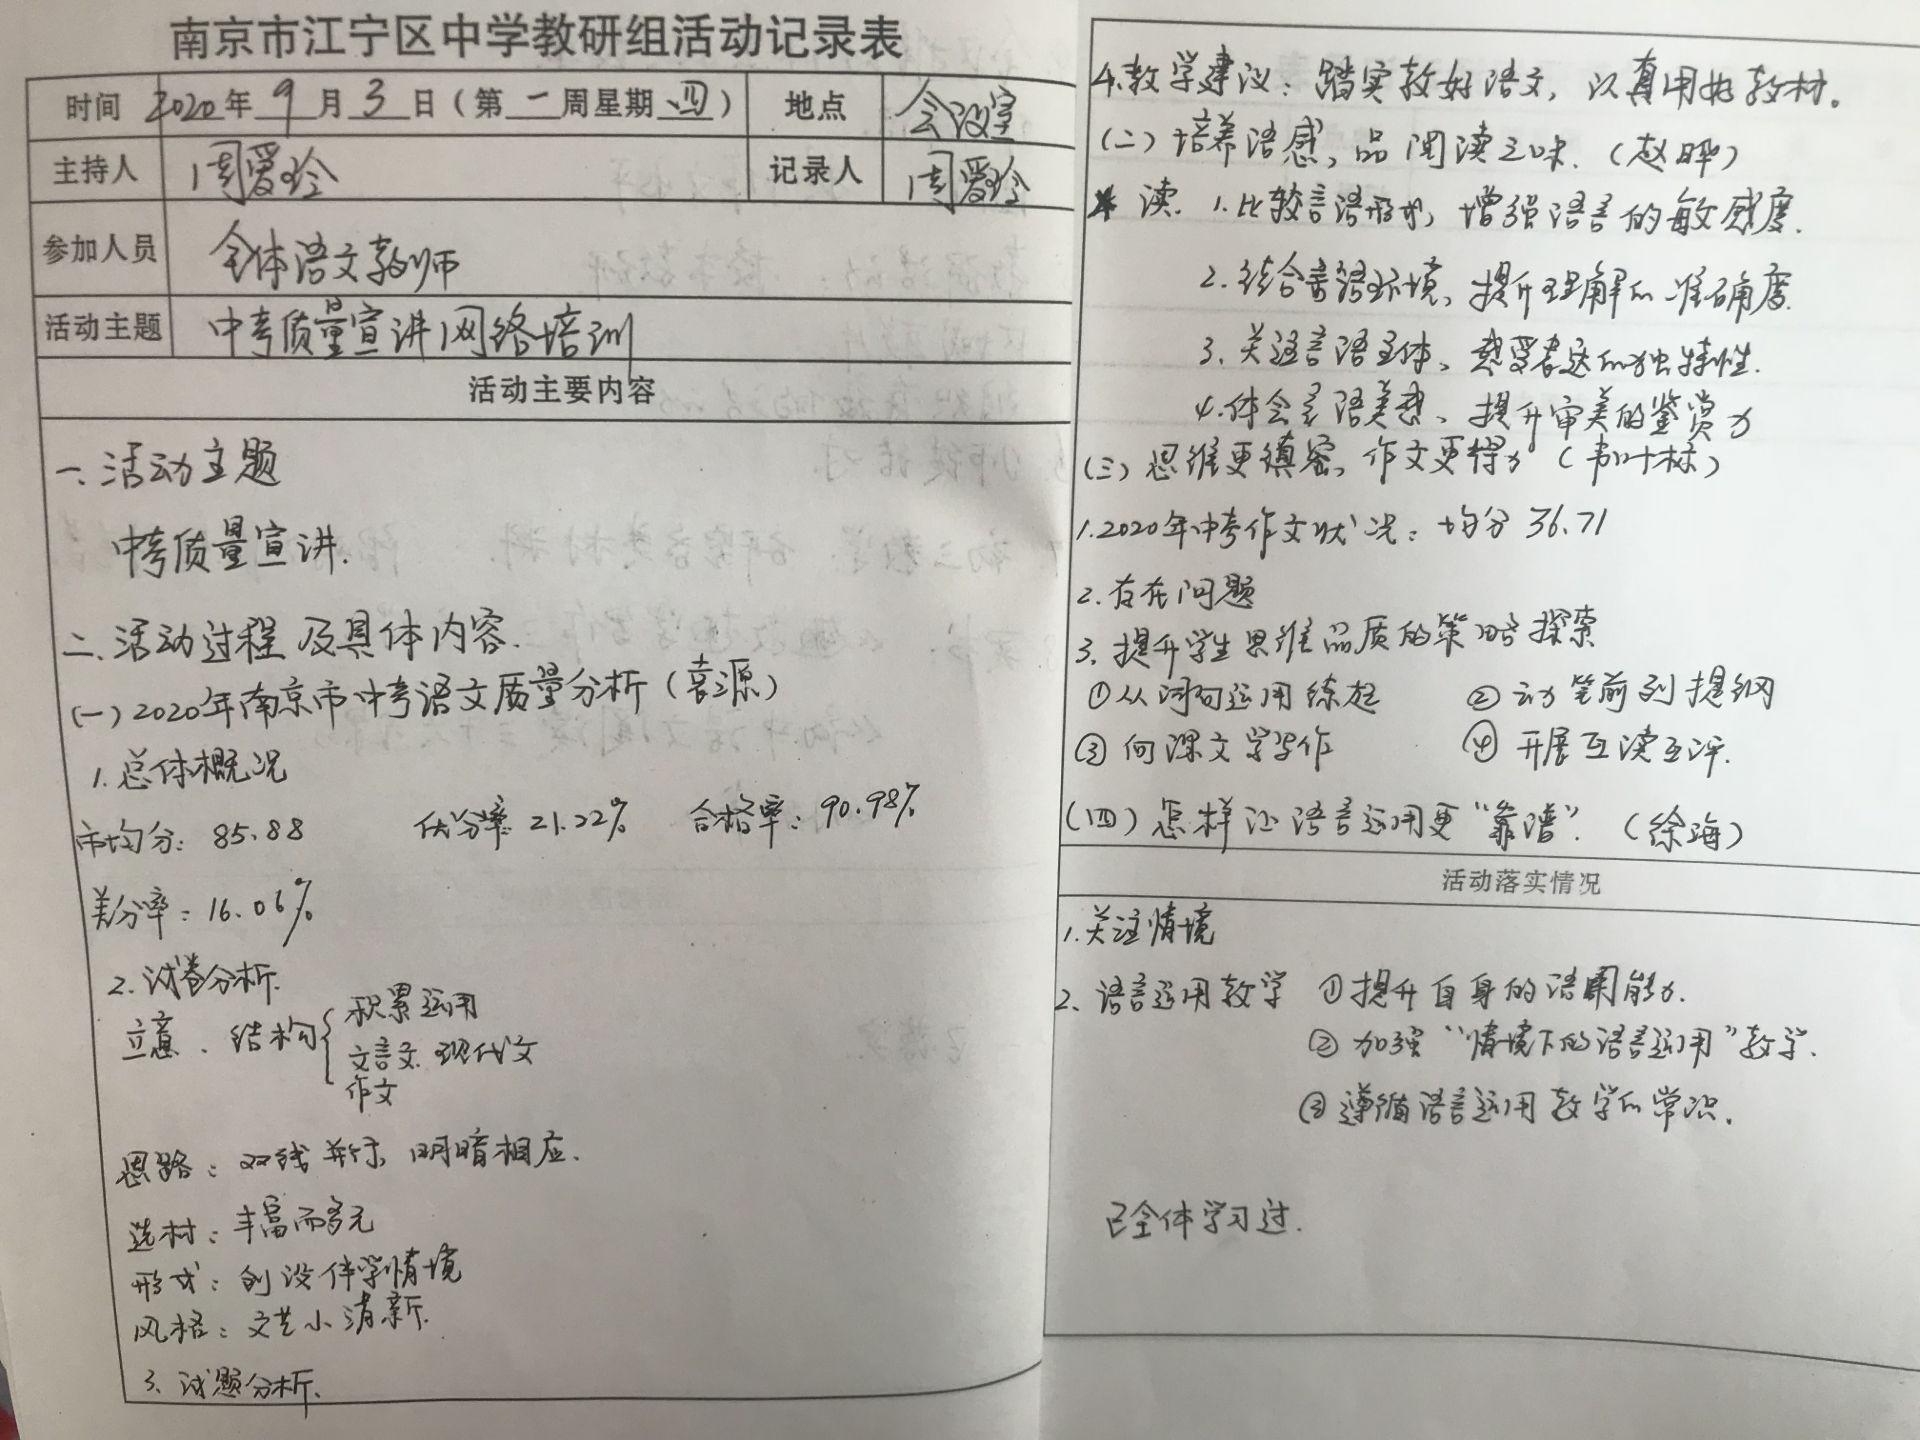 南京市江宁区中学教研组活动记录表
时间 2020年 9 月 3 日（第 一 周星期 四） 地点 会议室
主持人 周爱玲 记录人 周爱玲
参加人员 全体语文教师
活动主题 中考质量宣讲网络培训
活动主要内容
一、活动主题
中考质量宣讲.
二、活动过程及具体内容.
(一) 2020年南京市中考语文质量分析（袁源）
1.总体概况
市均分：85.88 优分率：21.22% 合格率：90.98%
差分率：16.06%
2.试卷分析.
立意、结构 积累运用
文言文.现代文
作文
思路：双线并行，明暗相应.
选材：丰富而多元
形式：创设伴学情境
风格：文艺小清新.
3、试题分析.
4.教学建议：踏实教好语文，认真用好教材。
(二) 培养语感，品阅读之味.（赵晔）
读. 1.比较言语形式，增强语言的敏感度.
2.结合言语环境，提升理解的准确度.
3.关注言语主体、感受表达的独特性.
4.体会言语美感、提升审美的鉴赏力
(三) 思维更缜密，作文更得力（韦叶标）
1.2020年中考作文状况：均分 36.71
2.存在问题
3.提升学生思维品质的策略探索
①从词句运用练起 ②动笔前列提纲
③向课文学写作 ④开展互读互评.
(四) 怎样让语言运用更“靠谱”.（徐海）
活动落实情况
1.关注情境
2.语言运用教学 ①提升自身的语用能力.
②加强“情境下的语言运用”教学.
③遵循语言运用教学的常识.
已全体学习过.